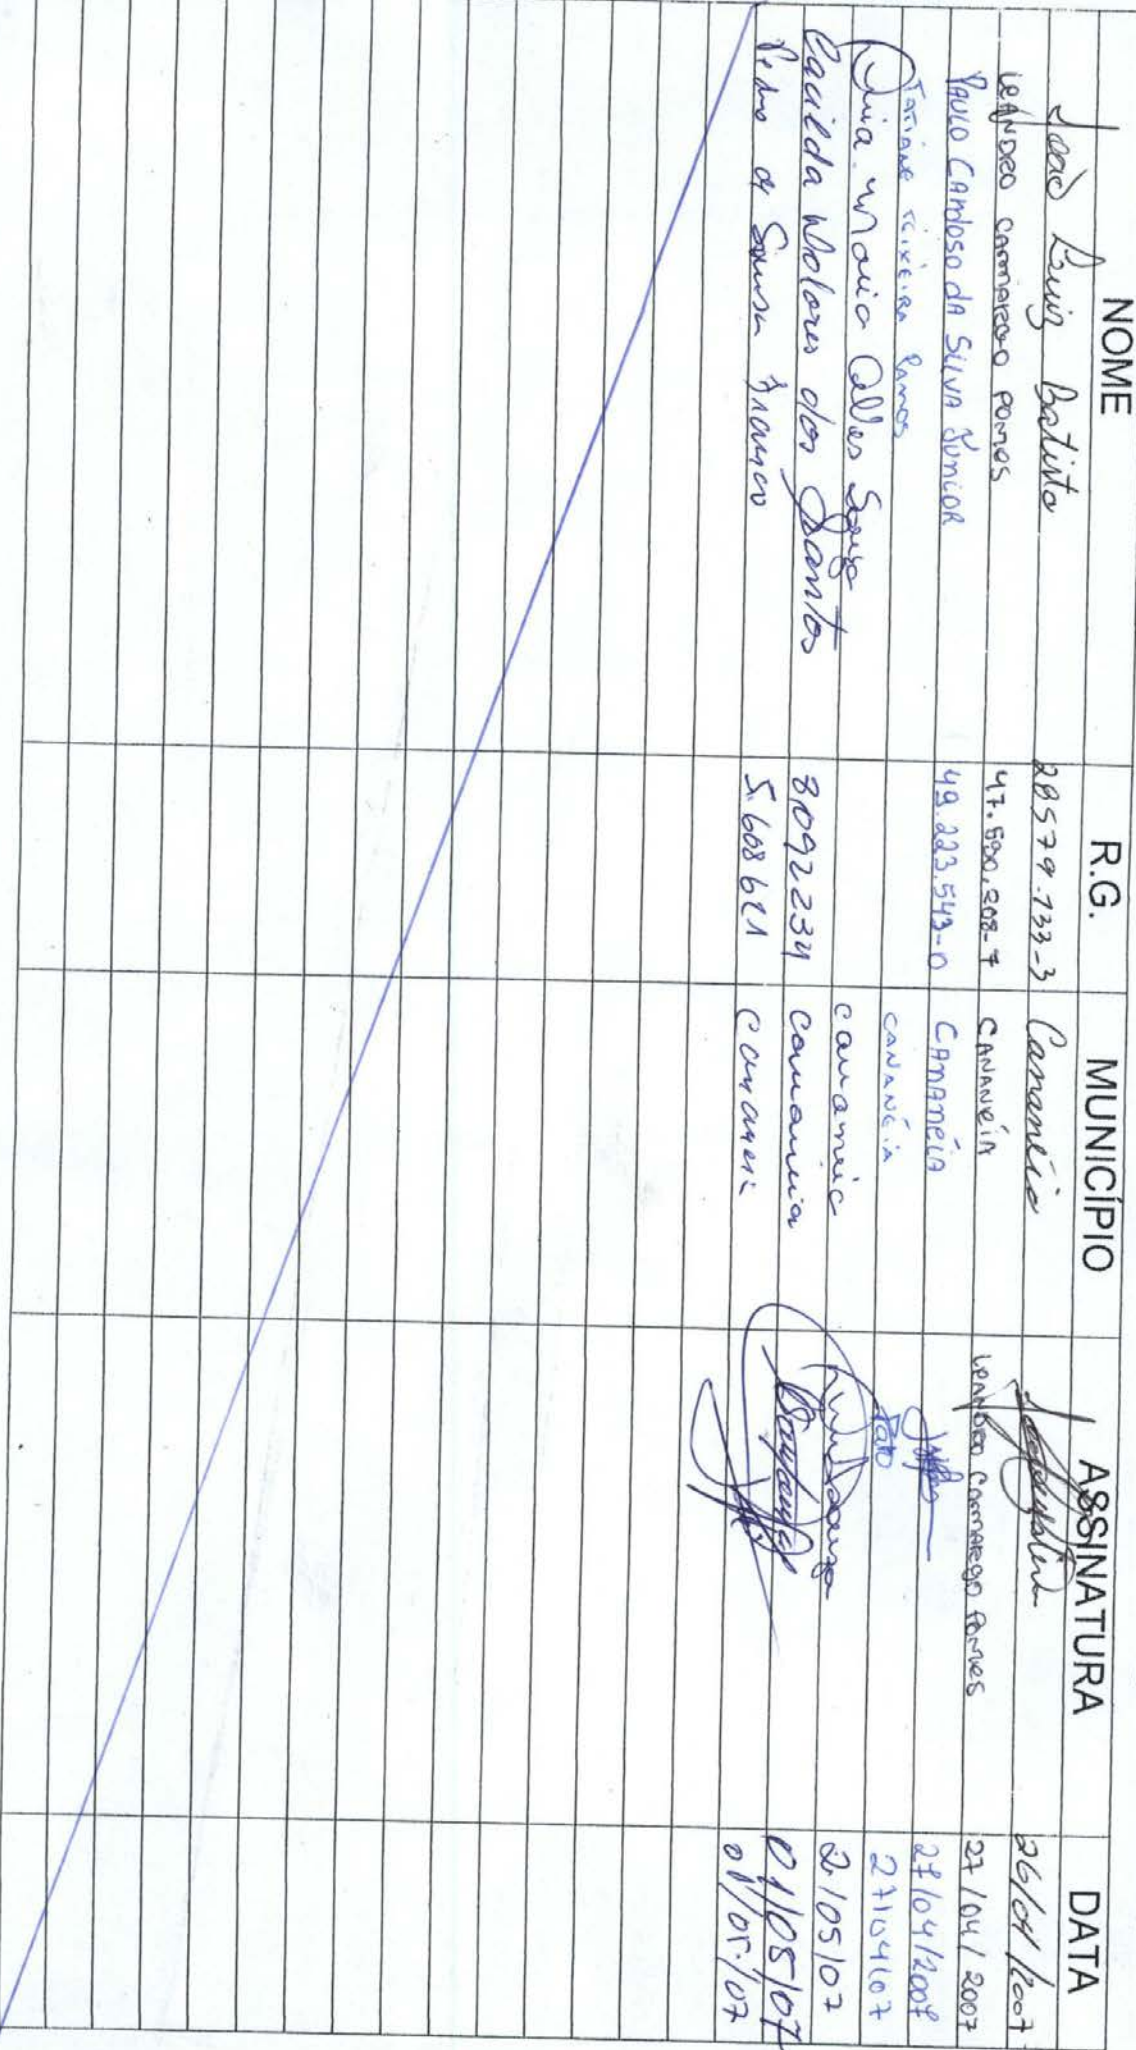 NOME R.G. MUNICÍPIO ASSINATURA DATA
João Luiz Batista 28579.733-3 Cananéia 26/04/2007
LEANDRO CAMARGO PONTES 47.590.208-7 CANANÉIA LEANDRO CAMARGO PONTES 27/04/2007
PAULO CARDOSO DA SILVA JÚNIOR 49.223.543-0 CANANÉIA 27/04/2007
TATIANE TEIXEIRA RAMOS CANANÉIA 27/04/07
Maria Alves Souza cananeia 2/05/07
dos Santos 8.092234 cananeia 01/05/07
Pedro de Sousa Franco 5.608621 cananeia 01/05/07